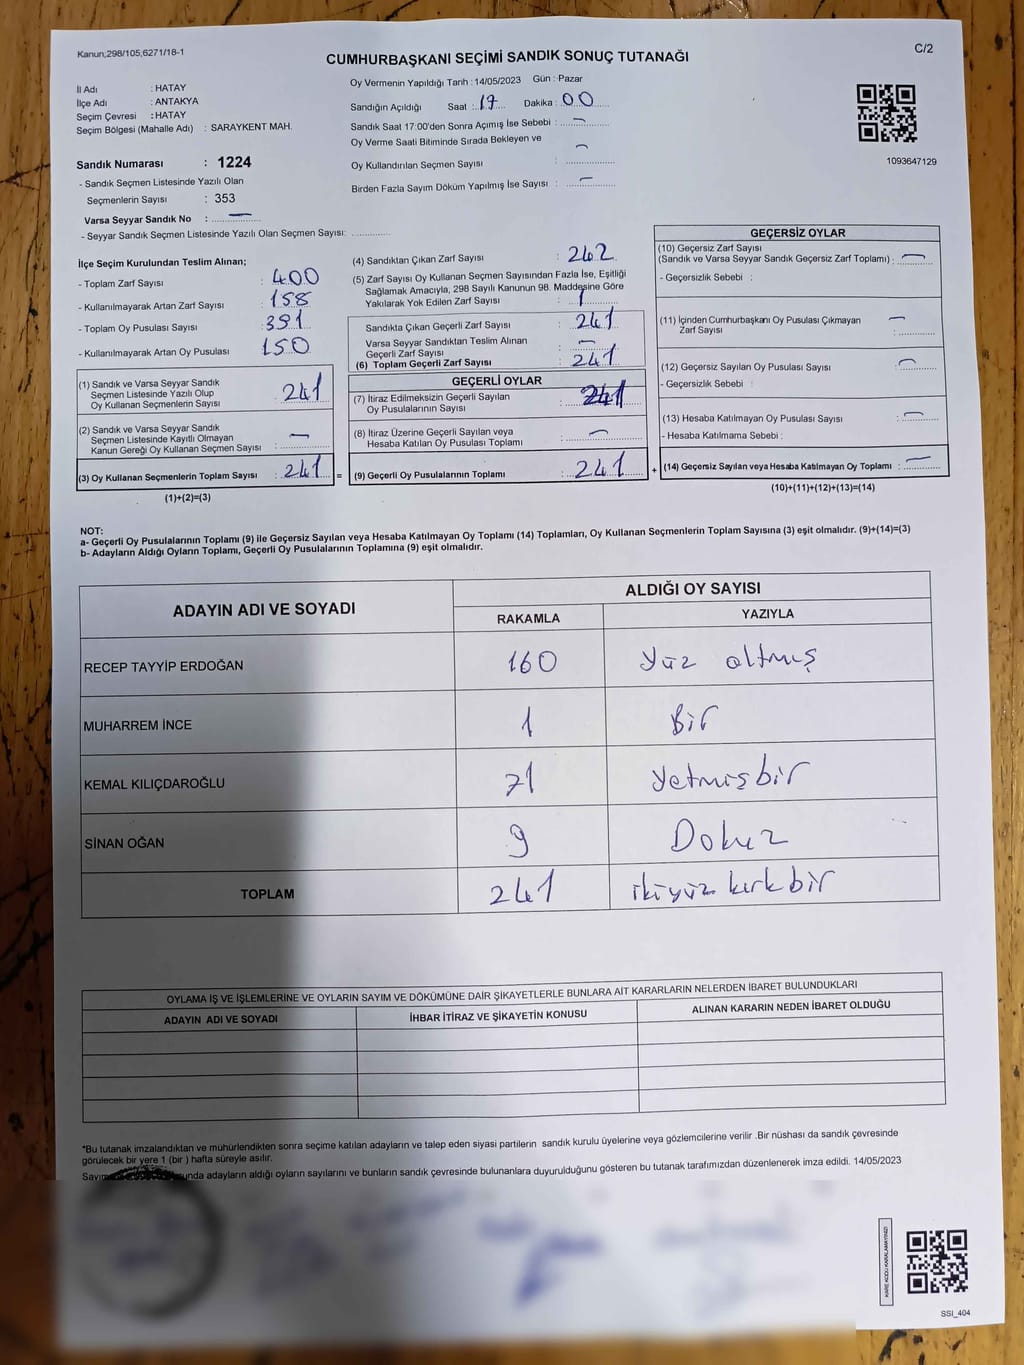 Kanun;298/105,6271/18-1
CUMHURBAŞKANI SEÇİMİ SANDIK SONUÇ TUTANAĞI
C/2
İl Adı : HATAY
İlçe Adı : ANTAKYA
Seçim Çevresi : HATAY
Seçim Bölgesi (Mahalle Adı) : SARAYKENT MAH.
Sandık Numarası : 1224
- Sandık Seçmen Listesinde Yazılı Olan
Seçmenlerin Sayısı : 353
Varsa Seyyar Sandık No : —
- Seyyar Sandık Seçmen Listesinde Yazılı Olan Seçmen Sayısı:
Oy Vermenin Yapıldığı Tarih : 14/05/2023 Gün : Pazar
Sandığın Açıldığı Saat : 17 Dakika : 00
Sandık Saat 17:00'den Sonra Açımış İse Sebebi : —
Oy Verme Saati Bitiminde Sırada Bekleyen ve
Oy Kullandırılan Seçmen Sayısı : —
Birden Fazla Sayım Döküm Yapılmış İse Sayısı : —
1093647129
İlçe Seçim Kurulundan Teslim Alınan;
- Toplam Zarf Sayısı : 400
- Kullanılmayarak Artan Zarf Sayısı : 158
- Toplam Oy Pusulası Sayısı : 391
- Kullanılmayarak Artan Oy Pusulası : 150
(1) Sandık ve Varsa Seyyar Sandık
Seçmen Listesinde Yazılı Olup
Oy Kullanan Seçmenlerin Sayısı : 241
(2) Sandık ve Varsa Seyyar Sandık
Seçmen Listesinde Kayıtlı Olmayan
Kanun Gereği Oy Kullanan Seçmen Sayısı : —
(3) Oy Kullanan Seçmenlerin Toplam Sayısı : 241 =
(1)+(2)=(3)
(4) Sandıktan Çıkan Zarf Sayısı : 242
(5) Zarf Sayısı Oy Kullanan Seçmen Sayısından Fazla İse, Eşitliği
Sağlamak Amacıyla, 298 Sayılı Kanunun 98. Maddesine Göre
Yakılarak Yok Edilen Zarf Sayısı : 1
Sandıkta Çıkan Geçerli Zarf Sayısı : 241
Varsa Seyyar Sandıktan Teslim Alınan
Geçerli Zarf Sayısı : —
(6) Toplam Geçerli Zarf Sayısı : 241
GEÇERLİ OYLAR
(7) İtiraz Edilmeksizin Geçerli Sayılan
Oy Pusulalarının Sayısı : 241
(8) İtiraz Üzerine Geçerli Sayılan veya
Hesaba Katılan Oy Pusulası Toplamı : —
(9) Geçerli Oy Pusulalarının Toplamı : 241 +
GEÇERSİZ OYLAR
(10) Geçersiz Zarf Sayısı
(Sandık ve Varsa Seyyar Sandık Geçersiz Zarf Toplamı) : —
- Geçersizlik Sebebi :
(11) İçinden Cumhurbaşkanı Oy Pusulası Çıkmayan
Zarf Sayısı : —
(12) Geçersiz Sayılan Oy Pusulası Sayısı : —
- Geçersizlik Sebebi :
(13) Hesaba Katılmayan Oy Pusulası Sayısı : —
- Hesaba Katılmama Sebebi :
(14) Geçersiz Sayılan veya Hesaba Katılmayan Oy Toplamı : —
(10)+(11)+(12)+(13)=(14)
NOT:
a- Geçerli Oy Pusulalarının Toplamı (9) ile Geçersiz Sayılan veya Hesaba Katılmayan Oy Toplamı (14) Toplamları, Oy Kullanan Seçmenlerin Toplam Sayısına (3) eşit olmalıdır. (9)+(14)=(3)
b- Adayların Aldığı Oyların Toplamı, Geçerli Oy Pusulalarının Toplamına (9) eşit olmalıdır.
ADAYIN ADI VE SOYADI
ALDIĞI OY SAYISI
RAKAMLA YAZIYLA
RECEP TAYYİP ERDOĞAN 160 Yüz altmış
MUHARREM İNCE 1 Bir
KEMAL KILIÇDAROĞLU 71 Yetmişbir
SİNAN OĞAN 9 Dokuz
TOPLAM 241 ikiyüz kırkbir
OYLAMA İŞ VE İŞLEMLERİNE VE OYLARIN SAYIM VE DÖKÜMÜNE DAİR ŞİKAYETLERLE BUNLARA AİT KARARLARIN NELERDEN İBARET BULUNDUKLARI
ADAYIN ADI VE SOYADI İHBAR İTİRAZ VE ŞİKAYETİN KONUSU ALINAN KARARIN NEDEN İBARET OLDUĞU
*Bu tutanak imzalandıktan ve mühürlendikten sonra seçime katılan adayların ve talep eden siyasi partilerin sandık kurulu üyelerine veya gözlemcilerine verilir .Bir nüshası da sandık çevresinde
görülecek bir yere 1 (bir ) hafta süreyle asılır.
adayların aldığı oyların sayılarını ve bunların sandık çevresinde bulunanlara duyurulduğunu gösteren bu tutanak tarafımızdan düzenlenerek imza edildi. 14/05/2023
KARE KODU KARALAMAYINIZ!
SSI_404